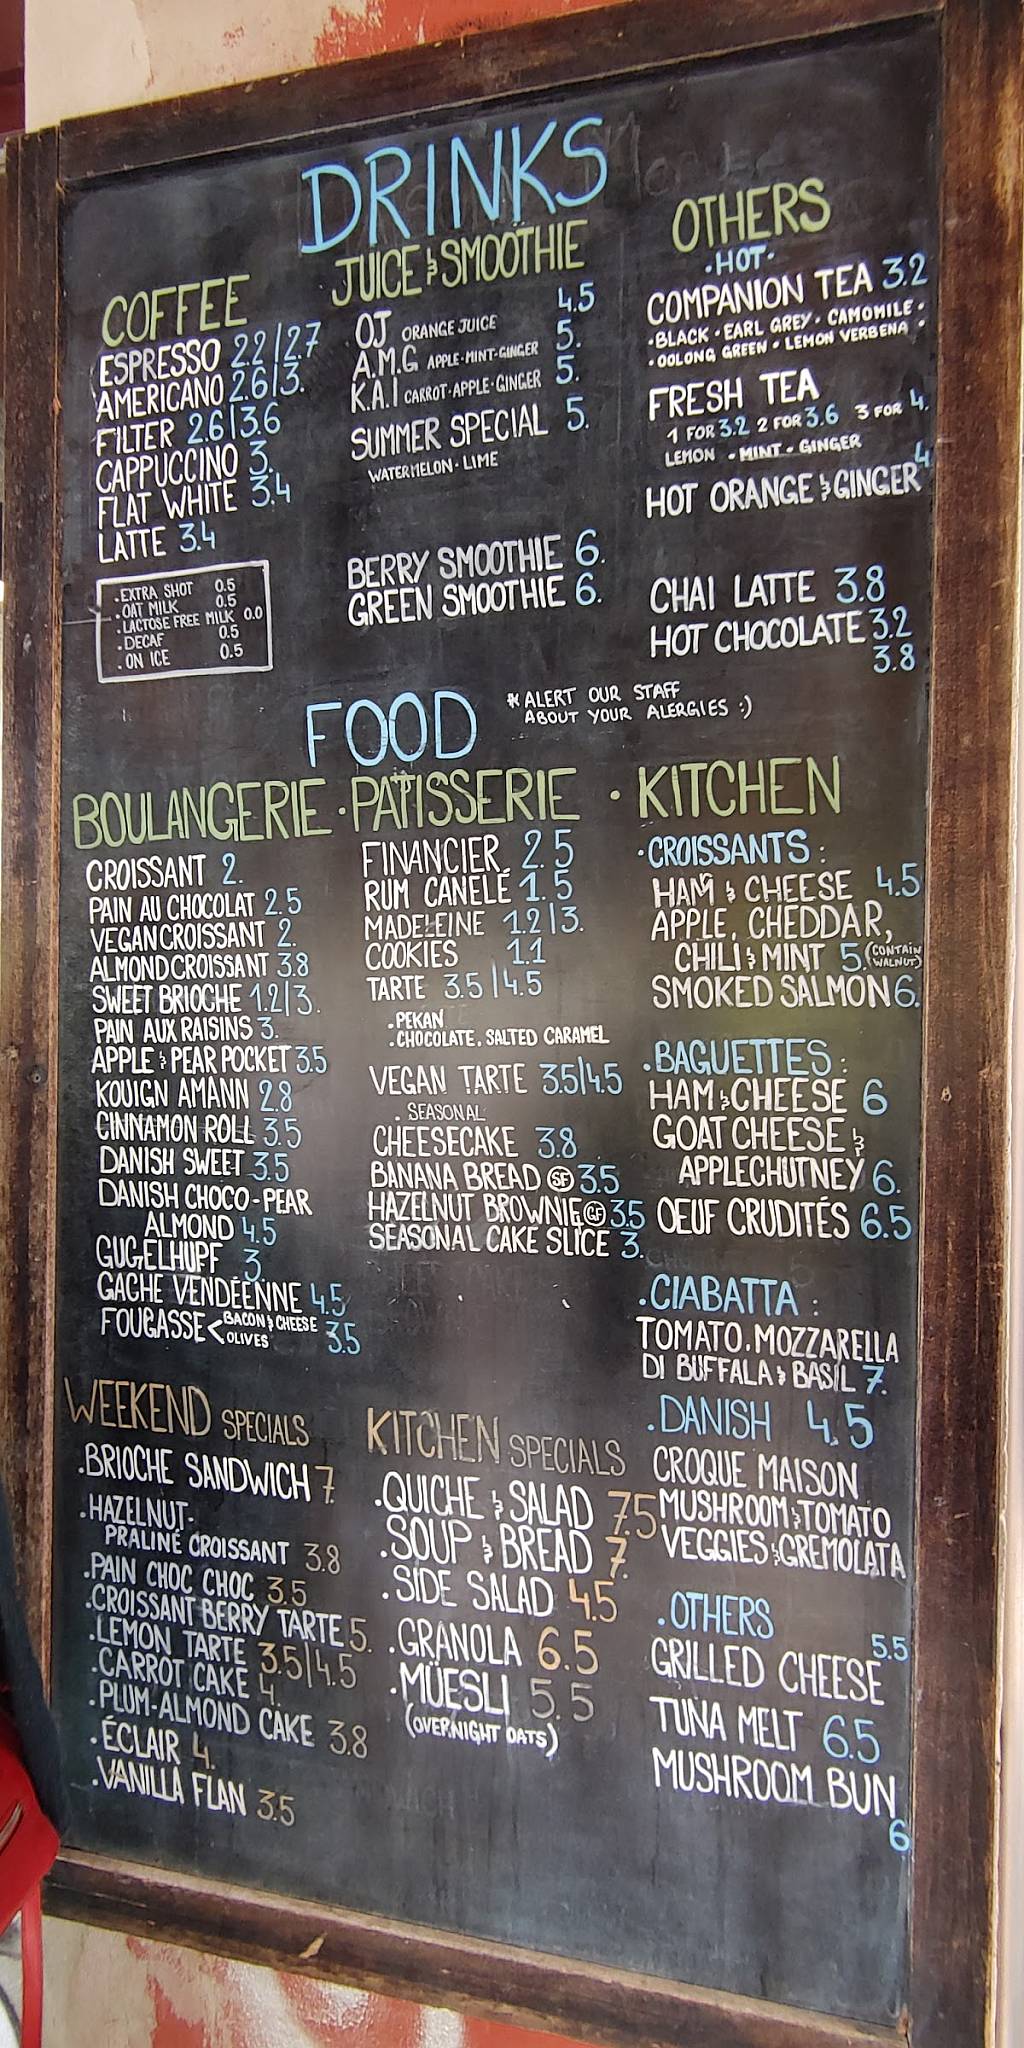 DRINKS
COFFEE
ESPRESSO 2.2|2.7
AMERICANO 2.6|3.
FILTER 2.6|3.6
CAPPUCCINO 3.
FLAT WHITE 3.4
LATTE 3.4
.EXTRA SHOT 0.5
.OAT MILK 0.5
.LACTOSE FREE MILK 0.0
.DECAF 0.5
.ON ICE 0.5
JUICE & SMOOTHIE
OJ ORANGE JUICE 4.5
A.M.G APPLE·MINT·GINGER 5.
K.A.I CARROT·APPLE·GINGER 5.
SUMMER SPECIAL 5.
WATERMELON·LIME
BERRY SMOOTHIE 6.
GREEN SMOOTHIE 6.
OTHERS
·HOT·
COMPANION TEA 3.2
·BLACK·EARL GREY·CAMOMILE·
·OOLONG GREEN·LEMON VERBENA·
FRESH TEA
1 FOR 3.2 2 FOR 3.6 3 FOR 4.
LEMON ·MINT·GINGER
HOT ORANGE & GINGER 4.
CHAI LATTE 3.8
HOT CHOCOLATE 3.2
3.8
FOOD
* ALERT OUR STAFF
ABOUT YOUR ALERGIES :)
BOULANGERIE · PATISSERIE · KITCHEN
CROISSANT 2.
PAIN AU CHOCOLAT 2.5
VEGAN CROISSANT 2.
ALMOND CROISSANT 3.8
SWEET BRIOCHE 1.2|3.
PAIN AUX RAISINS 3.
APPLE & PEAR POCKET 3.5
KOUIGN AMANN 2.8
CINNAMON ROLL 3.5
DANISH SWEET 3.5
DANISH CHOCO-PEAR
ALMOND 4.5
GUGELHUPF 3.
GACHE VENDÉENNE 4.5
FOUGASSE < BACON & CHEESE
OLIVES 3.5
FINANCIER 2.5
RUM CANELÉ 1.5
MADELEINE 1.2|3.
COOKIES 1.1
TARTE 3.5|4.5
.PEKAN
.CHOCOLATE, SALTED CARAMEL
VEGAN TARTE 3.5|4.5
.SEASONAL
CHEESECAKE 3.8
BANANA BREAD SF 3.5
HAZELNUT BROWNIE GF 3.5
SEASONAL CAKE SLICE 3.
·CROISSANTS:
HAM & CHEESE 4.5
APPLE, CHEDDAR,
CHILI & MINT 5. (CONTAIN
WALNUT)
SMOKED SALMON 6.
.BAGUETTES:
HAM & CHEESE 6
GOAT CHEESE &
APPLECHUTNEY 6.
OEUF CRUDITÉS 6.5
.CIABATTA :
TOMATO.MOZZARELLA
DI BUFFALA & BASIL 7.
.DANISH 4.5
CROQUE MAISON
MUSHROOM & TOMATO
VEGGIES & GREMOLATA
.OTHERS
GRILLED CHEESE 5.5
TUNA MELT 6.5
MUSHROOM BUN
6
WEEKEND SPECIALS
.BRIOCHE SANDWICH 7.
.HAZELNUT-
PRALINÉ CROISSANT 3.8
.PAIN CHOC CHOC 3.5
.CROISSANT BERRY TARTE 5.
.LEMON TARTE 3.5|4.5
.CARROT CAKE 4.
.PLUM-ALMOND CAKE 3.8
.ÉCLAIR 4.
.VANILLA FLAN 3.5
KITCHEN SPECIALS
.QUICHE & SALAD 7.5
.SOUP & BREAD 7.
.SIDE SALAD 4.5
.GRANOLA 6.5
.MÜESLI 5.5
(OVERNIGHT OATS)